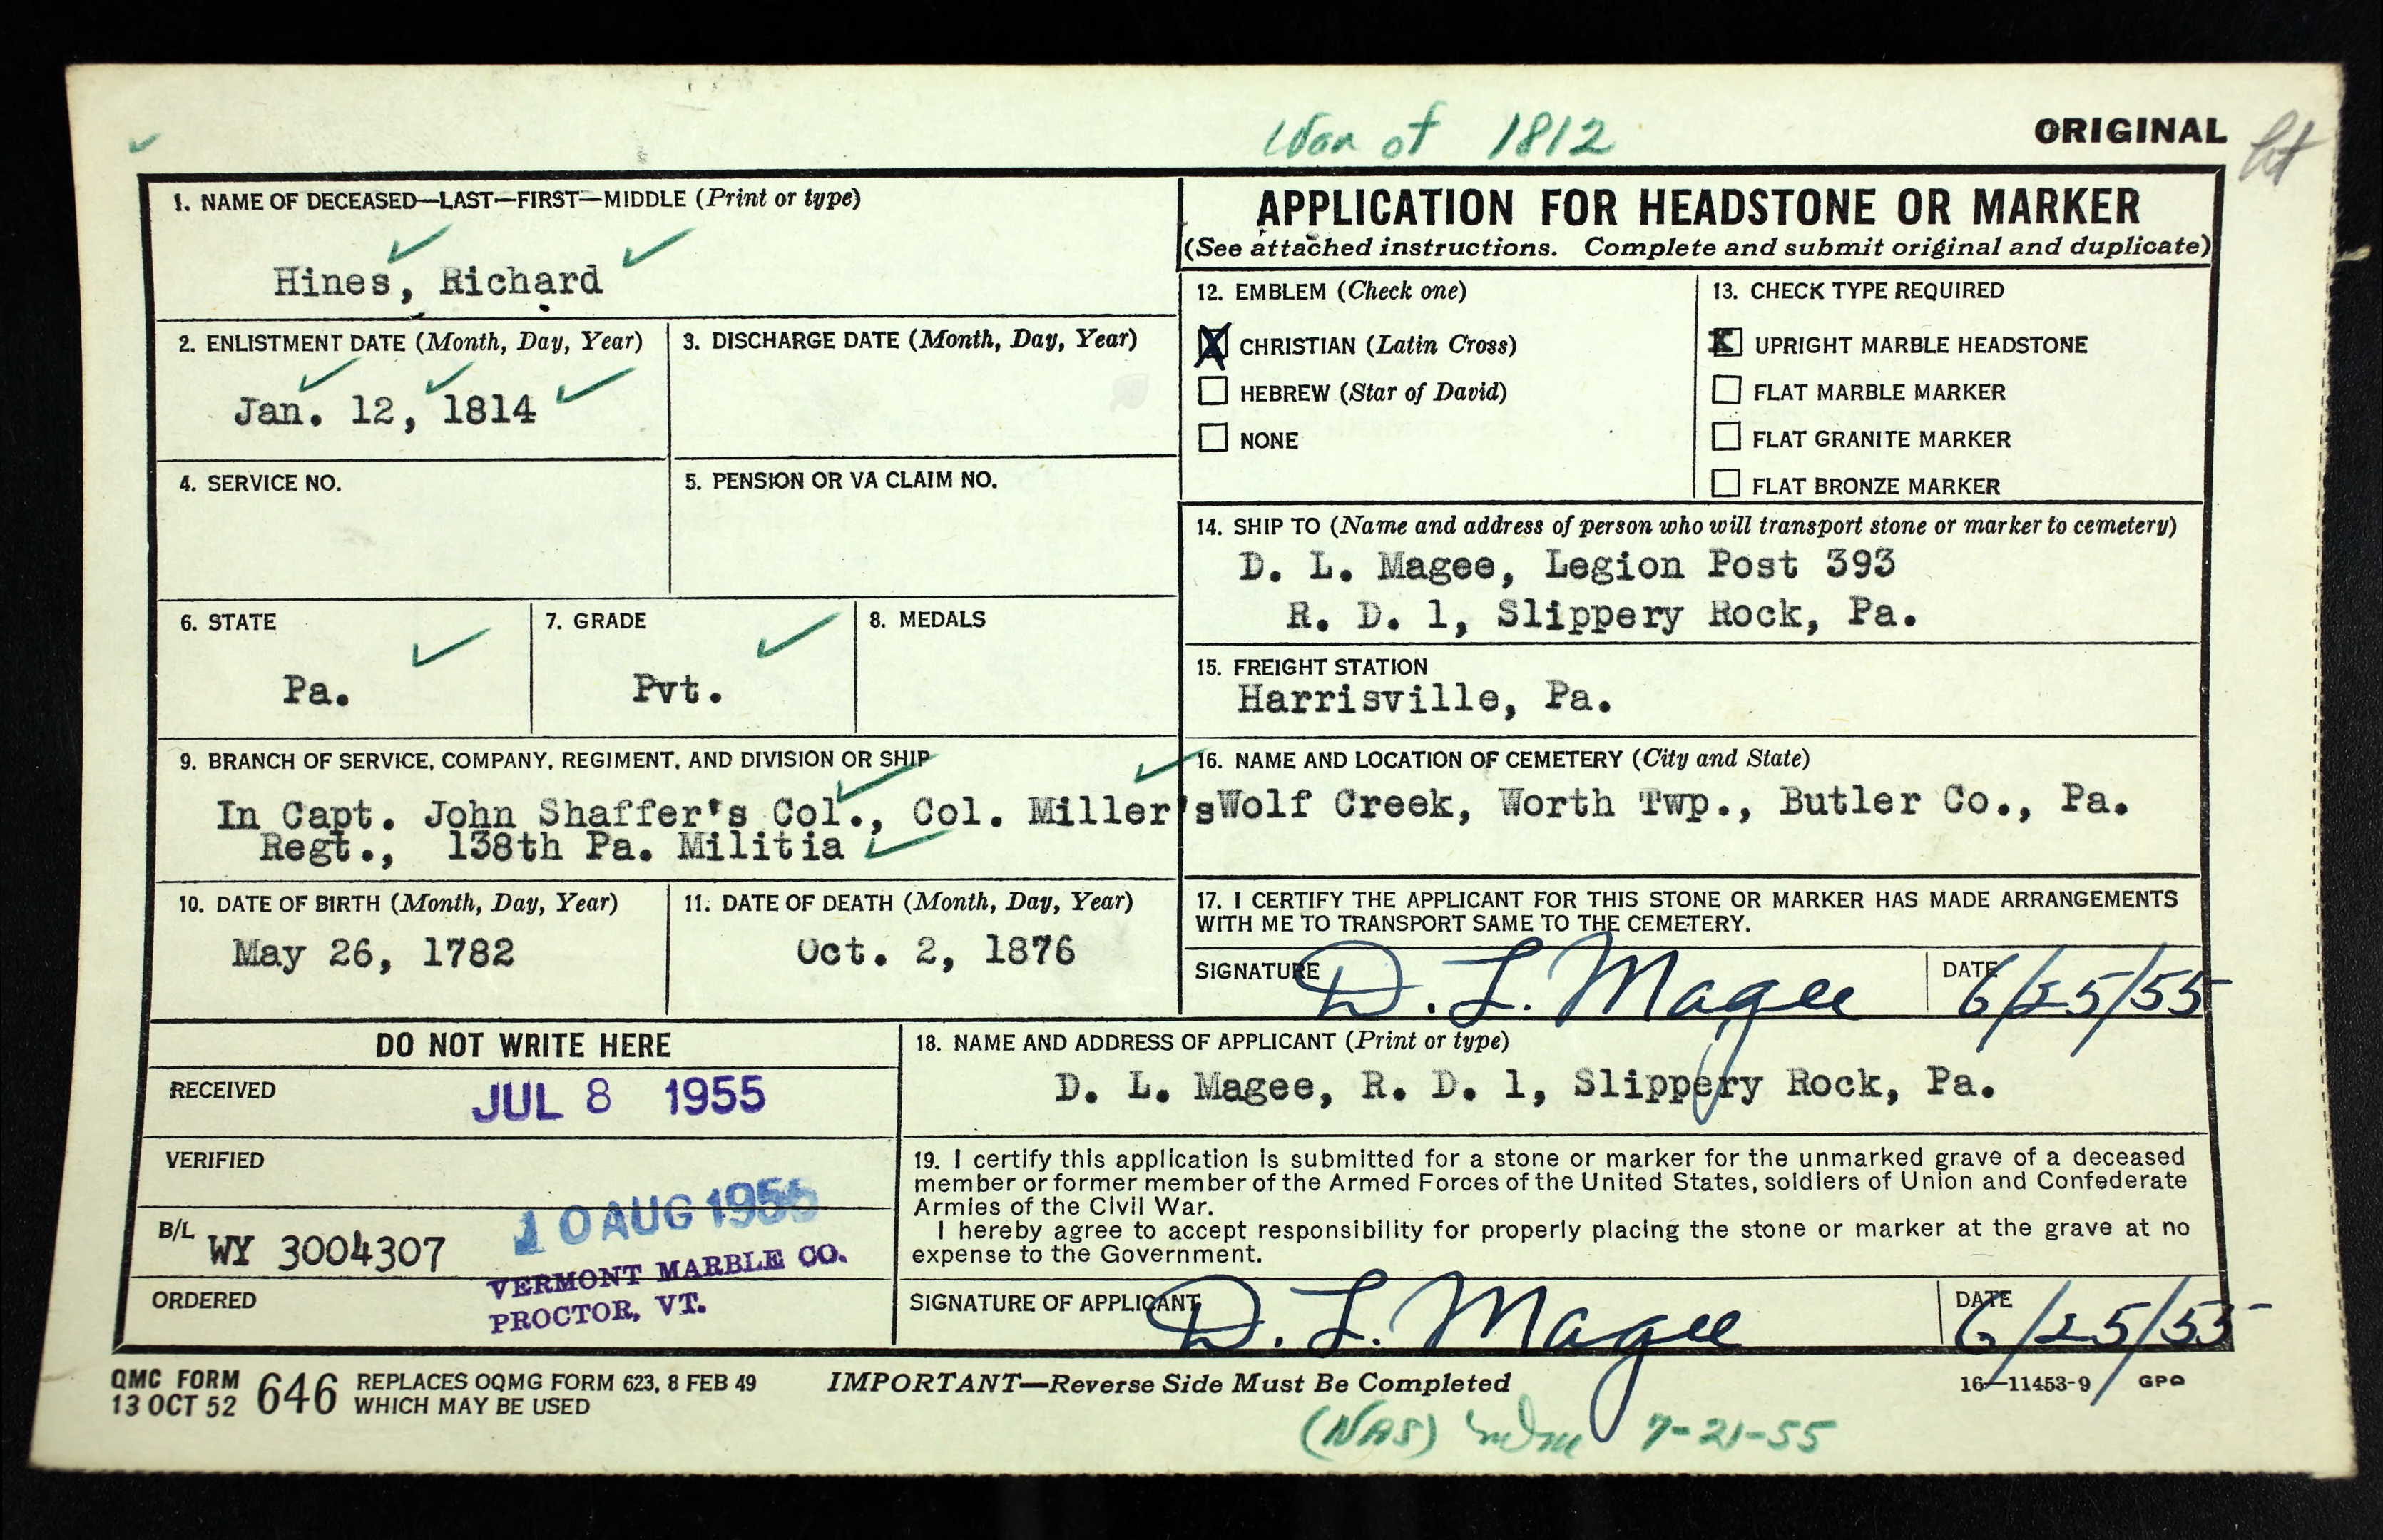 War of 1812
ORIGINAL
1. NAME OF DECEASED—LAST—FIRST—MIDDLE (Print or type)
Hines, Richard
2. ENLISTMENT DATE (Month, Day, Year)
Jan. 12, 1814
3. DISCHARGE DATE (Month, Day, Year)
4. SERVICE NO.
5. PENSION OR VA CLAIM NO.
6. STATE
Pa.
7. GRADE
Pvt.
8. MEDALS
9. BRANCH OF SERVICE, COMPANY, REGIMENT, AND DIVISION OR SHIP
In Capt. John Shaffer's Col., Col. Miller's
Regt., 138th Pa. Militia
10. DATE OF BIRTH (Month, Day, Year)
May 26, 1782
11. DATE OF DEATH (Month, Day, Year)
Oct. 2, 1876
APPLICATION FOR HEADSTONE OR MARKER
(See attached instructions. Complete and submit original and duplicate)
12. EMBLEM (Check one)
X CHRISTIAN (Latin Cross)
HEBREW (Star of David)
NONE
13. CHECK TYPE REQUIRED
X UPRIGHT MARBLE HEADSTONE
FLAT MARBLE MARKER
FLAT GRANITE MARKER
FLAT BRONZE MARKER
14. SHIP TO (Name and address of person who will transport stone or marker to cemetery)
D. L. Magee, Legion Post 393
R. D. 1, Slippery Rock, Pa.
15. FREIGHT STATION
Harrisville, Pa.
16. NAME AND LOCATION OF CEMETERY (City and State)
Wolf Creek, Worth Twp., Butler Co., Pa.
17. I CERTIFY THE APPLICANT FOR THIS STONE OR MARKER HAS MADE ARRANGEMENTS
WITH ME TO TRANSPORT SAME TO THE CEMETERY.
SIGNATURE D. L. Magee DATE 6/25/55
DO NOT WRITE HERE
RECEIVED JUL 8 1955
VERIFIED
10 AUG 1955
B/L WY 3004307
VERMONT MARBLE CO.
PROCTOR, VT.
ORDERED
18. NAME AND ADDRESS OF APPLICANT (Print or type)
D. L. Magee, R. D. 1, Slippery Rock, Pa.
19. I certify this application is submitted for a stone or marker for the unmarked grave of a deceased
member or former member of the Armed Forces of the United States, soldiers of Union and Confederate
Armies of the Civil War.
I hereby agree to accept responsibility for properly placing the stone or marker at the grave at no
expense to the Government.
SIGNATURE OF APPLICANT D. L. Magee DATE 6/25/55
QMC FORM 646 REPLACES OQMG FORM 623, 8 FEB 49
13 OCT 52 WHICH MAY BE USED
IMPORTANT—Reverse Side Must Be Completed
16—11453-9 GPO
(NAS) 7-21-55